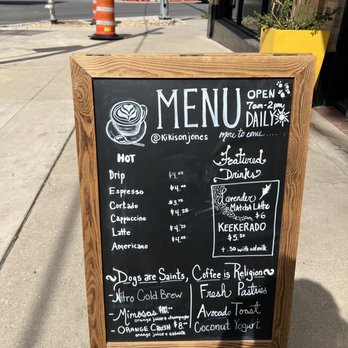 MENU
OPEN
7am-2pm
DAILY
@Kikisonjones
more to come....
HOT
Drip
Espresso $4.00
Cortado
Cappuccino $4.25
Latte
Americano $4.00
Featured
Drinks
Lavender
Matcha Latte
$6
KEEKERADO
$5.50
+.50 with oatmilk
~Dogs are Saints, Coffee is Religion~
-Nitro Cold Brew
-Mimosas
orange juice + champagne
-ORANGE CRUSH $8
orange juice + oatmilk
Fresh Pastries
Avocado Toast
Coconut Yogurt